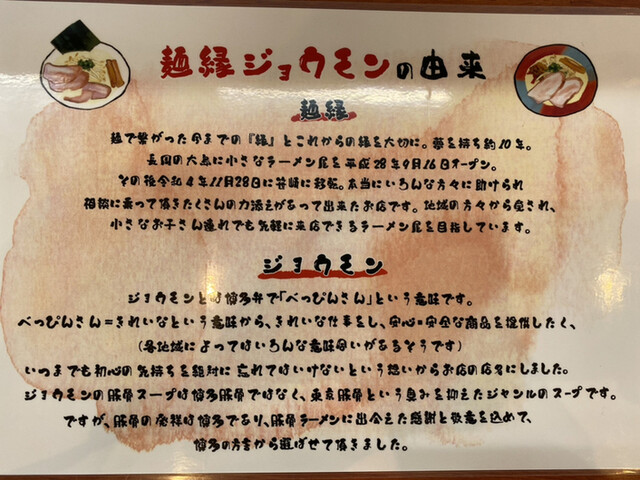 麺縁ジョウモンの由来
麺縁
麺で繋がった今までの『縁』とこれからの縁を大切に。夢を持ち約10年。
長岡の大島に小さなラーメン屋を平成28年9月16日オープン。
その後令和4年11月28日に笹崎に移転。本当にいろんな方々に助けられ
相談に乗って頂きたくさんの力添えがあって出来たお店です。地域の方々から愛され、
小さなお子さん連れでも気軽に来店できるラーメン屋を目指しています。
ジョウモン
ジョウモンとは博多弁で「べっぴんさん」という意味です。
べっぴんさん=きれいなという意味から、きれいな仕事をし、安心・安全な商品を提供したく、
(各地域によってはいろんな意味合いがあるそうです)
いつまでも初心の気持ちを絶対に忘れてはいけないという想いからお店の店名にしました。
ジョウモンの豚骨スープは博多豚骨ではなく、東京豚骨という臭みを抑えたジャンルのスープです。
ですが、豚骨の発祥は博多であり、豚骨ラーメンに出会えた感謝と敬意を込めて、
博多の方言から選ばせて頂きました。